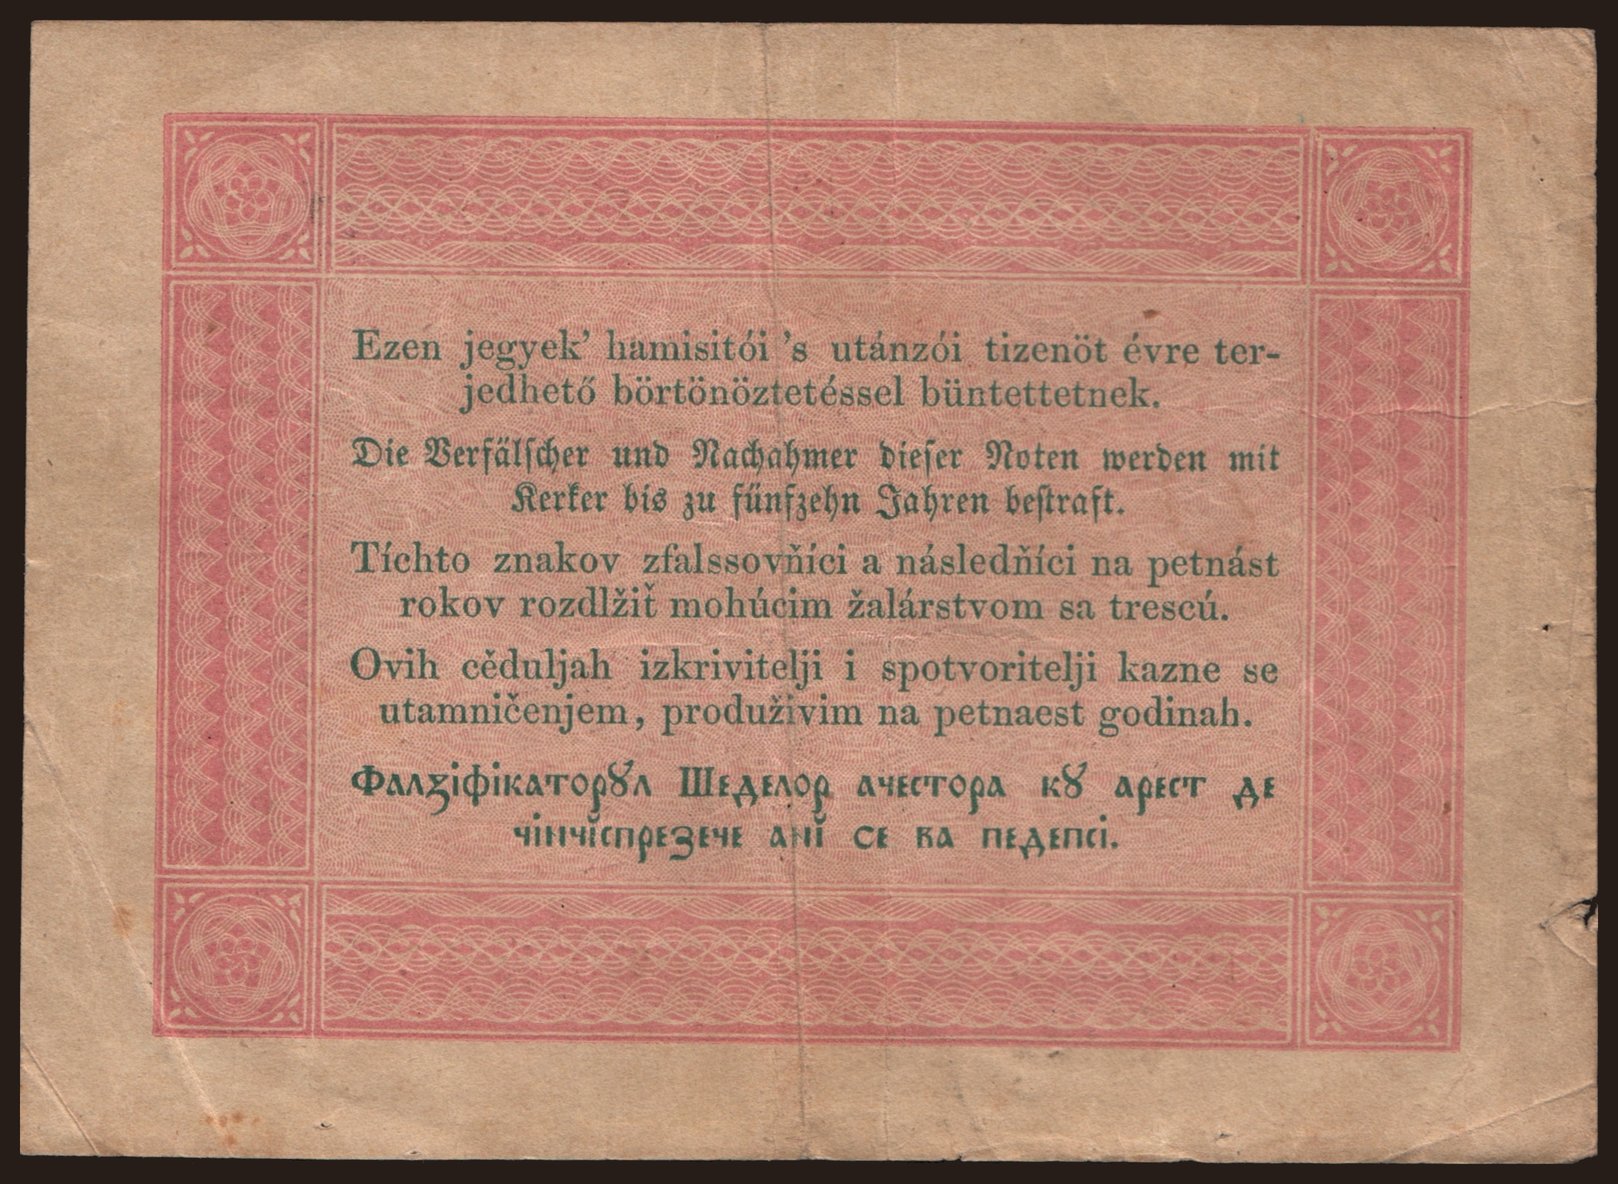 Ezen jegyek’ hamisitói ’s utánzói tizenöt évre ter-
jedhető börtönöztetéssel büntettetnek.
Die Verfälscher und Nachahmer dieser Noten werden mit
Kerker bis zu fünfzehn Jahren bestraft.
Tíchto znakov zfalssovňíci a následňíci na petnást
rokov rozdlžiť mohúcim žalárstvom sa trescú.
Ovih cěduljah izkrivitelji i spotvoritelji kazne se
utamničenjem, produživim na petnaest godinah.
Фалꙁіфікаторꙋл Шеделор ачестора кꙋ арест де
чінчіспрезече ані се ва педепсі.